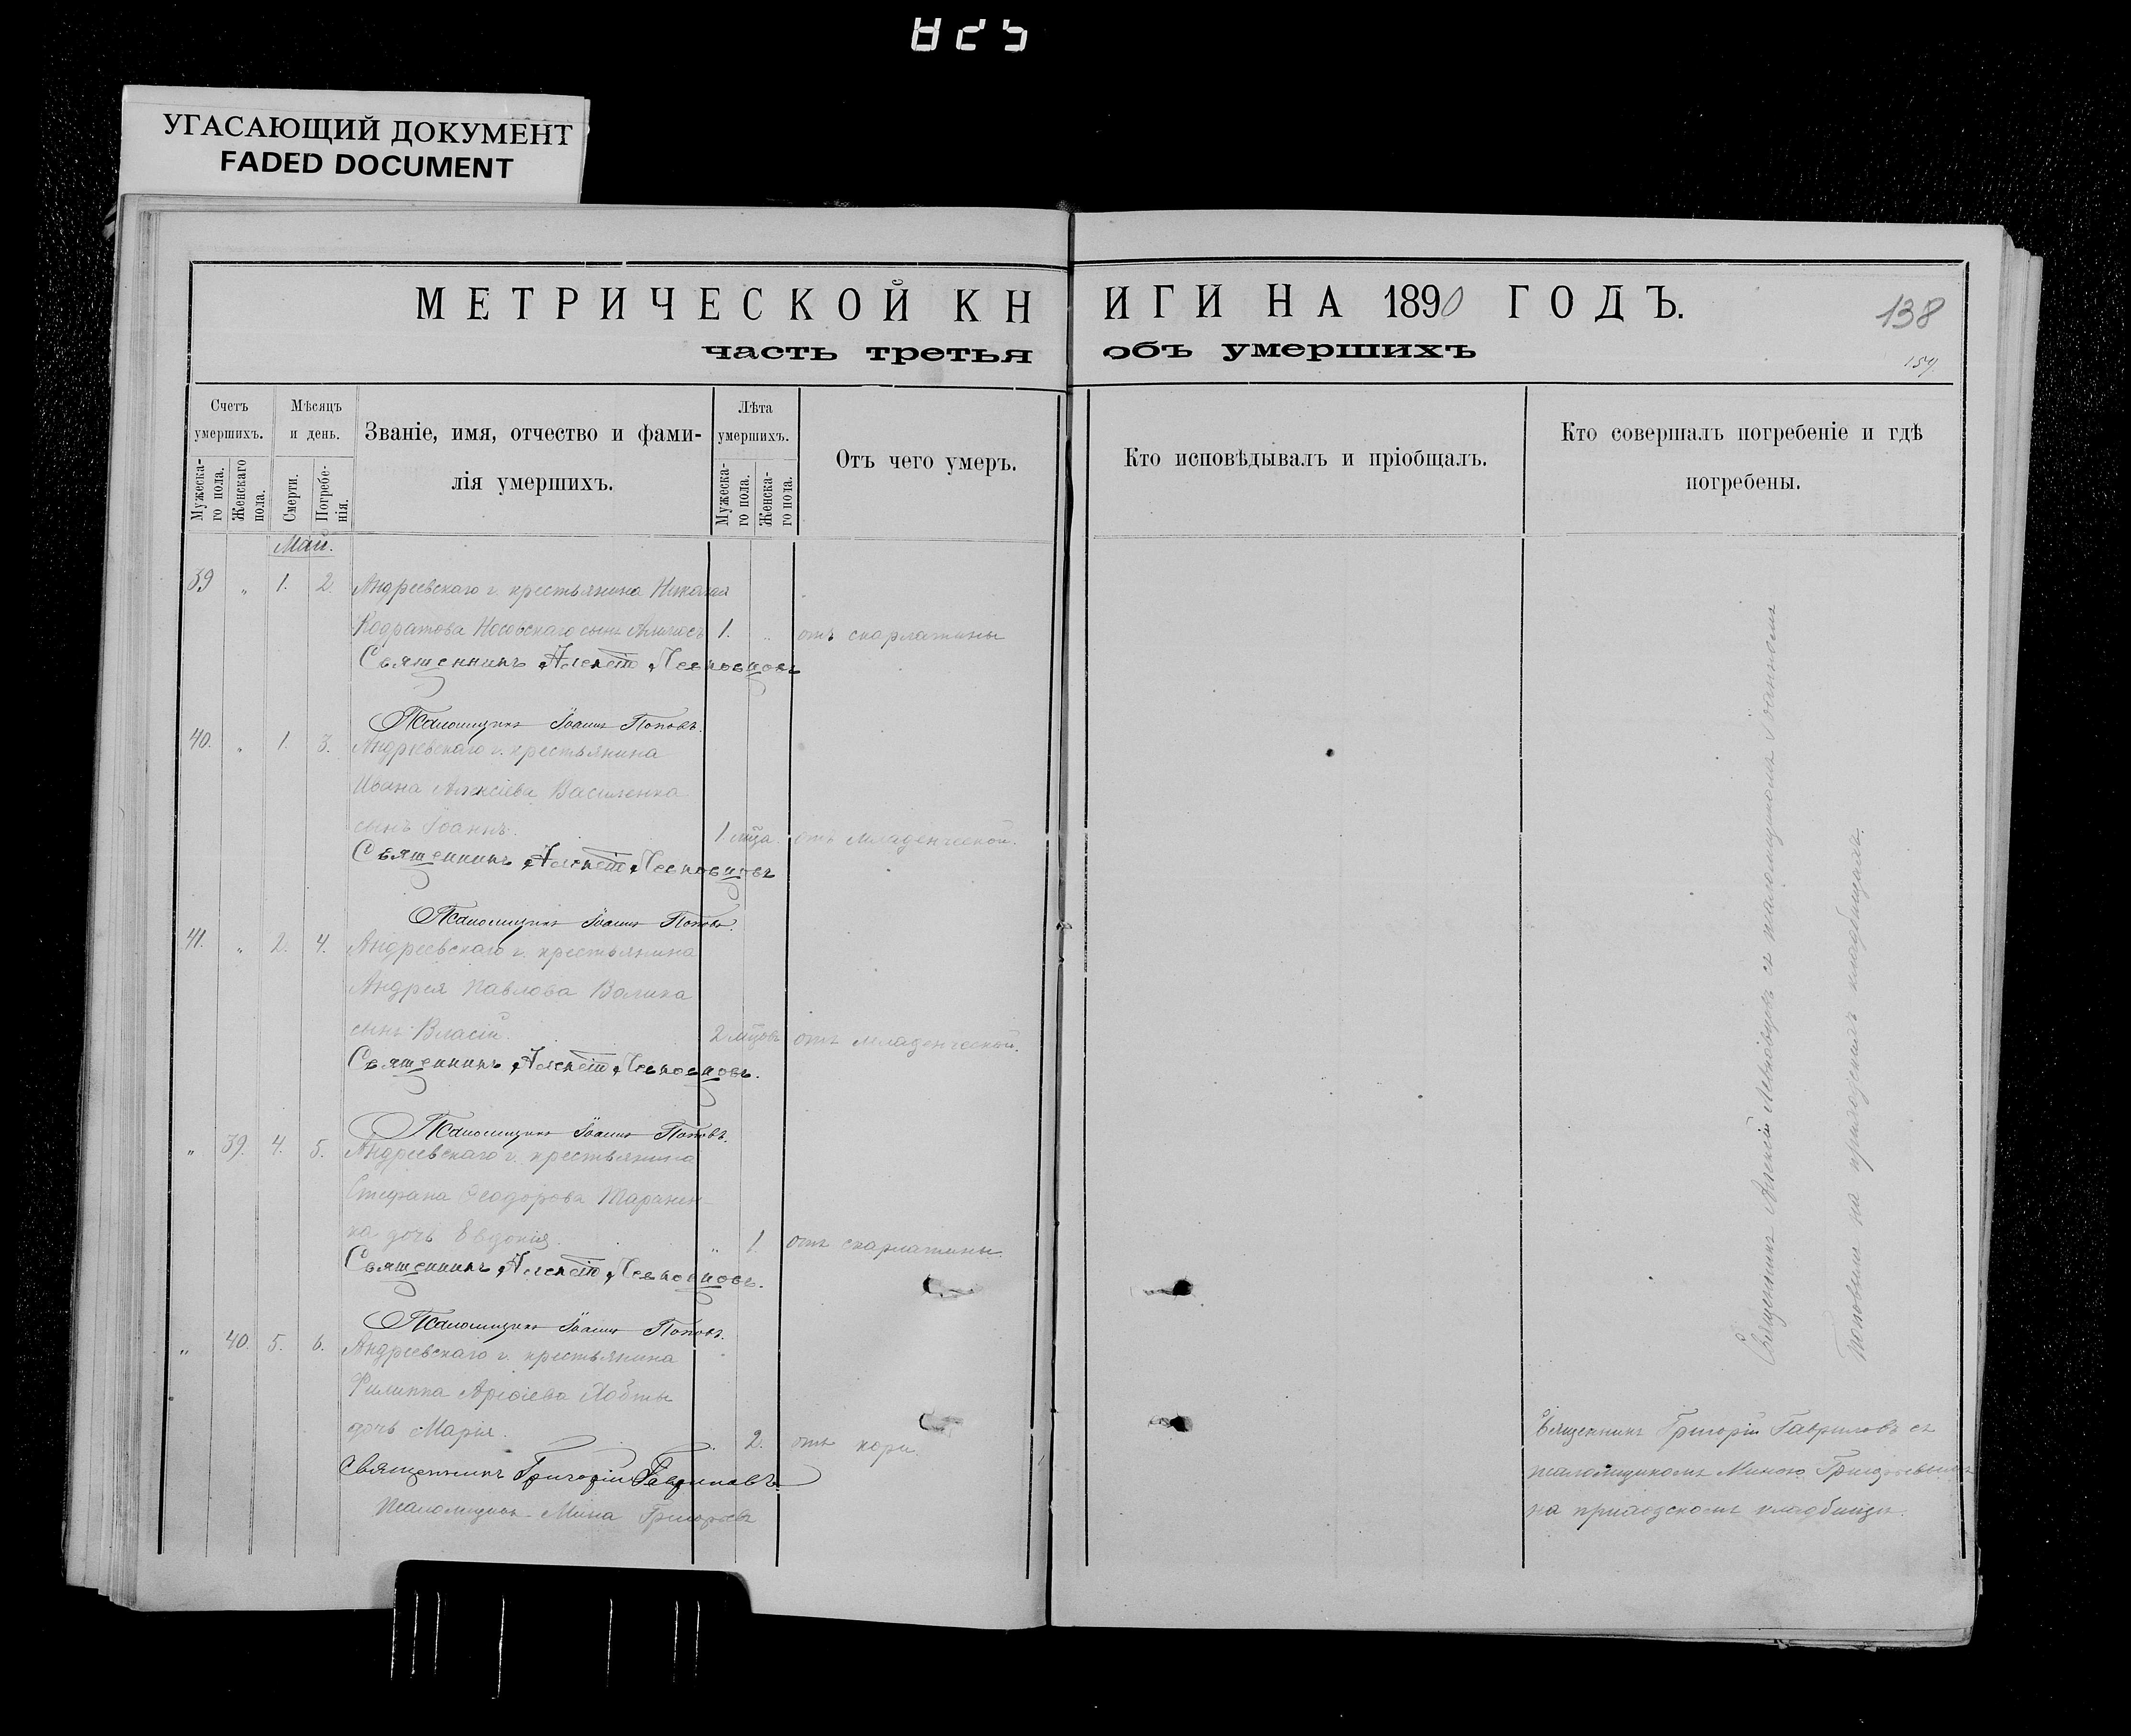 УГАСАЮЩИЙ ДОКУМЕНТ
FADED DOCUMENT
МЕТРИЧЕСКОЙ КНИГИ НА 1890 ГОДЪ.
138
часть третья объ умершихъ
Счетъ умершихъ.
Мужескаго пола.
Женскаго пола.
Мѣсяцъ и день.
Смерти.
Погребенія.
Званіе, имя, отчество и фамилія умершихъ.
Лѣта умершихъ.
Мужескаго пола.
Женскаго пола.
Отъ чего умеръ.
Кто исповѣдывалъ и пріобщалъ.
Кто совершалъ погребеніе и гдѣ погребены.
Май.
39 „ 1. 2. Андреевскаго г. крестьянина Николая
Кодратова Носовскаго сынъ 1. „ отъ скарлатины
Священникъ Алексій Левковцовъ
Псаломщикъ Іоаннъ Поповъ.
40. „ 1. 3. Андреевскаго г. крестьянина
Иоана Алексіева Василенка
сынъ Іоаннъ. 1 мца. отъ младенческой.
Священникъ Алексій Левковцовъ
Псаломщикъ Іоаннъ Поповъ.
41. „ 2. 4. Андреевскаго г. крестьянина
Андрея Павлова Волика
сынъ Власій. 2 мцовъ отъ младенческой.
Священникъ Алексій Левковцовъ.
Псаломщикъ Іоаннъ Поповъ.
„ 39. 4. 5. Андреевскаго г. крестьянина
Стефана Ѳеодорова Таранен-
ка дочь Евдокія. „ 1. отъ скарлатины.
Священникъ Алексій Левковцовъ.
Псаломщикъ Іоаннъ Поповъ.
„ 40. 5. 6. Андреевскаго г. крестьянина
Филиппа
дочь Марія. 2. отъ кори.
Священникъ Григорій Гавриловъ
Псаломщикъ Мина Григорьевъ
Священникъ Алексій Левковцовъ съ псаломщикомъ Іоанномъ
Поповымъ на приходскомъ кладбищѣ.
Священникъ Григорій Гавриловъ съ
псаломщикомъ Миною Григорьевымъ
на приходскомъ кладбищѣ.